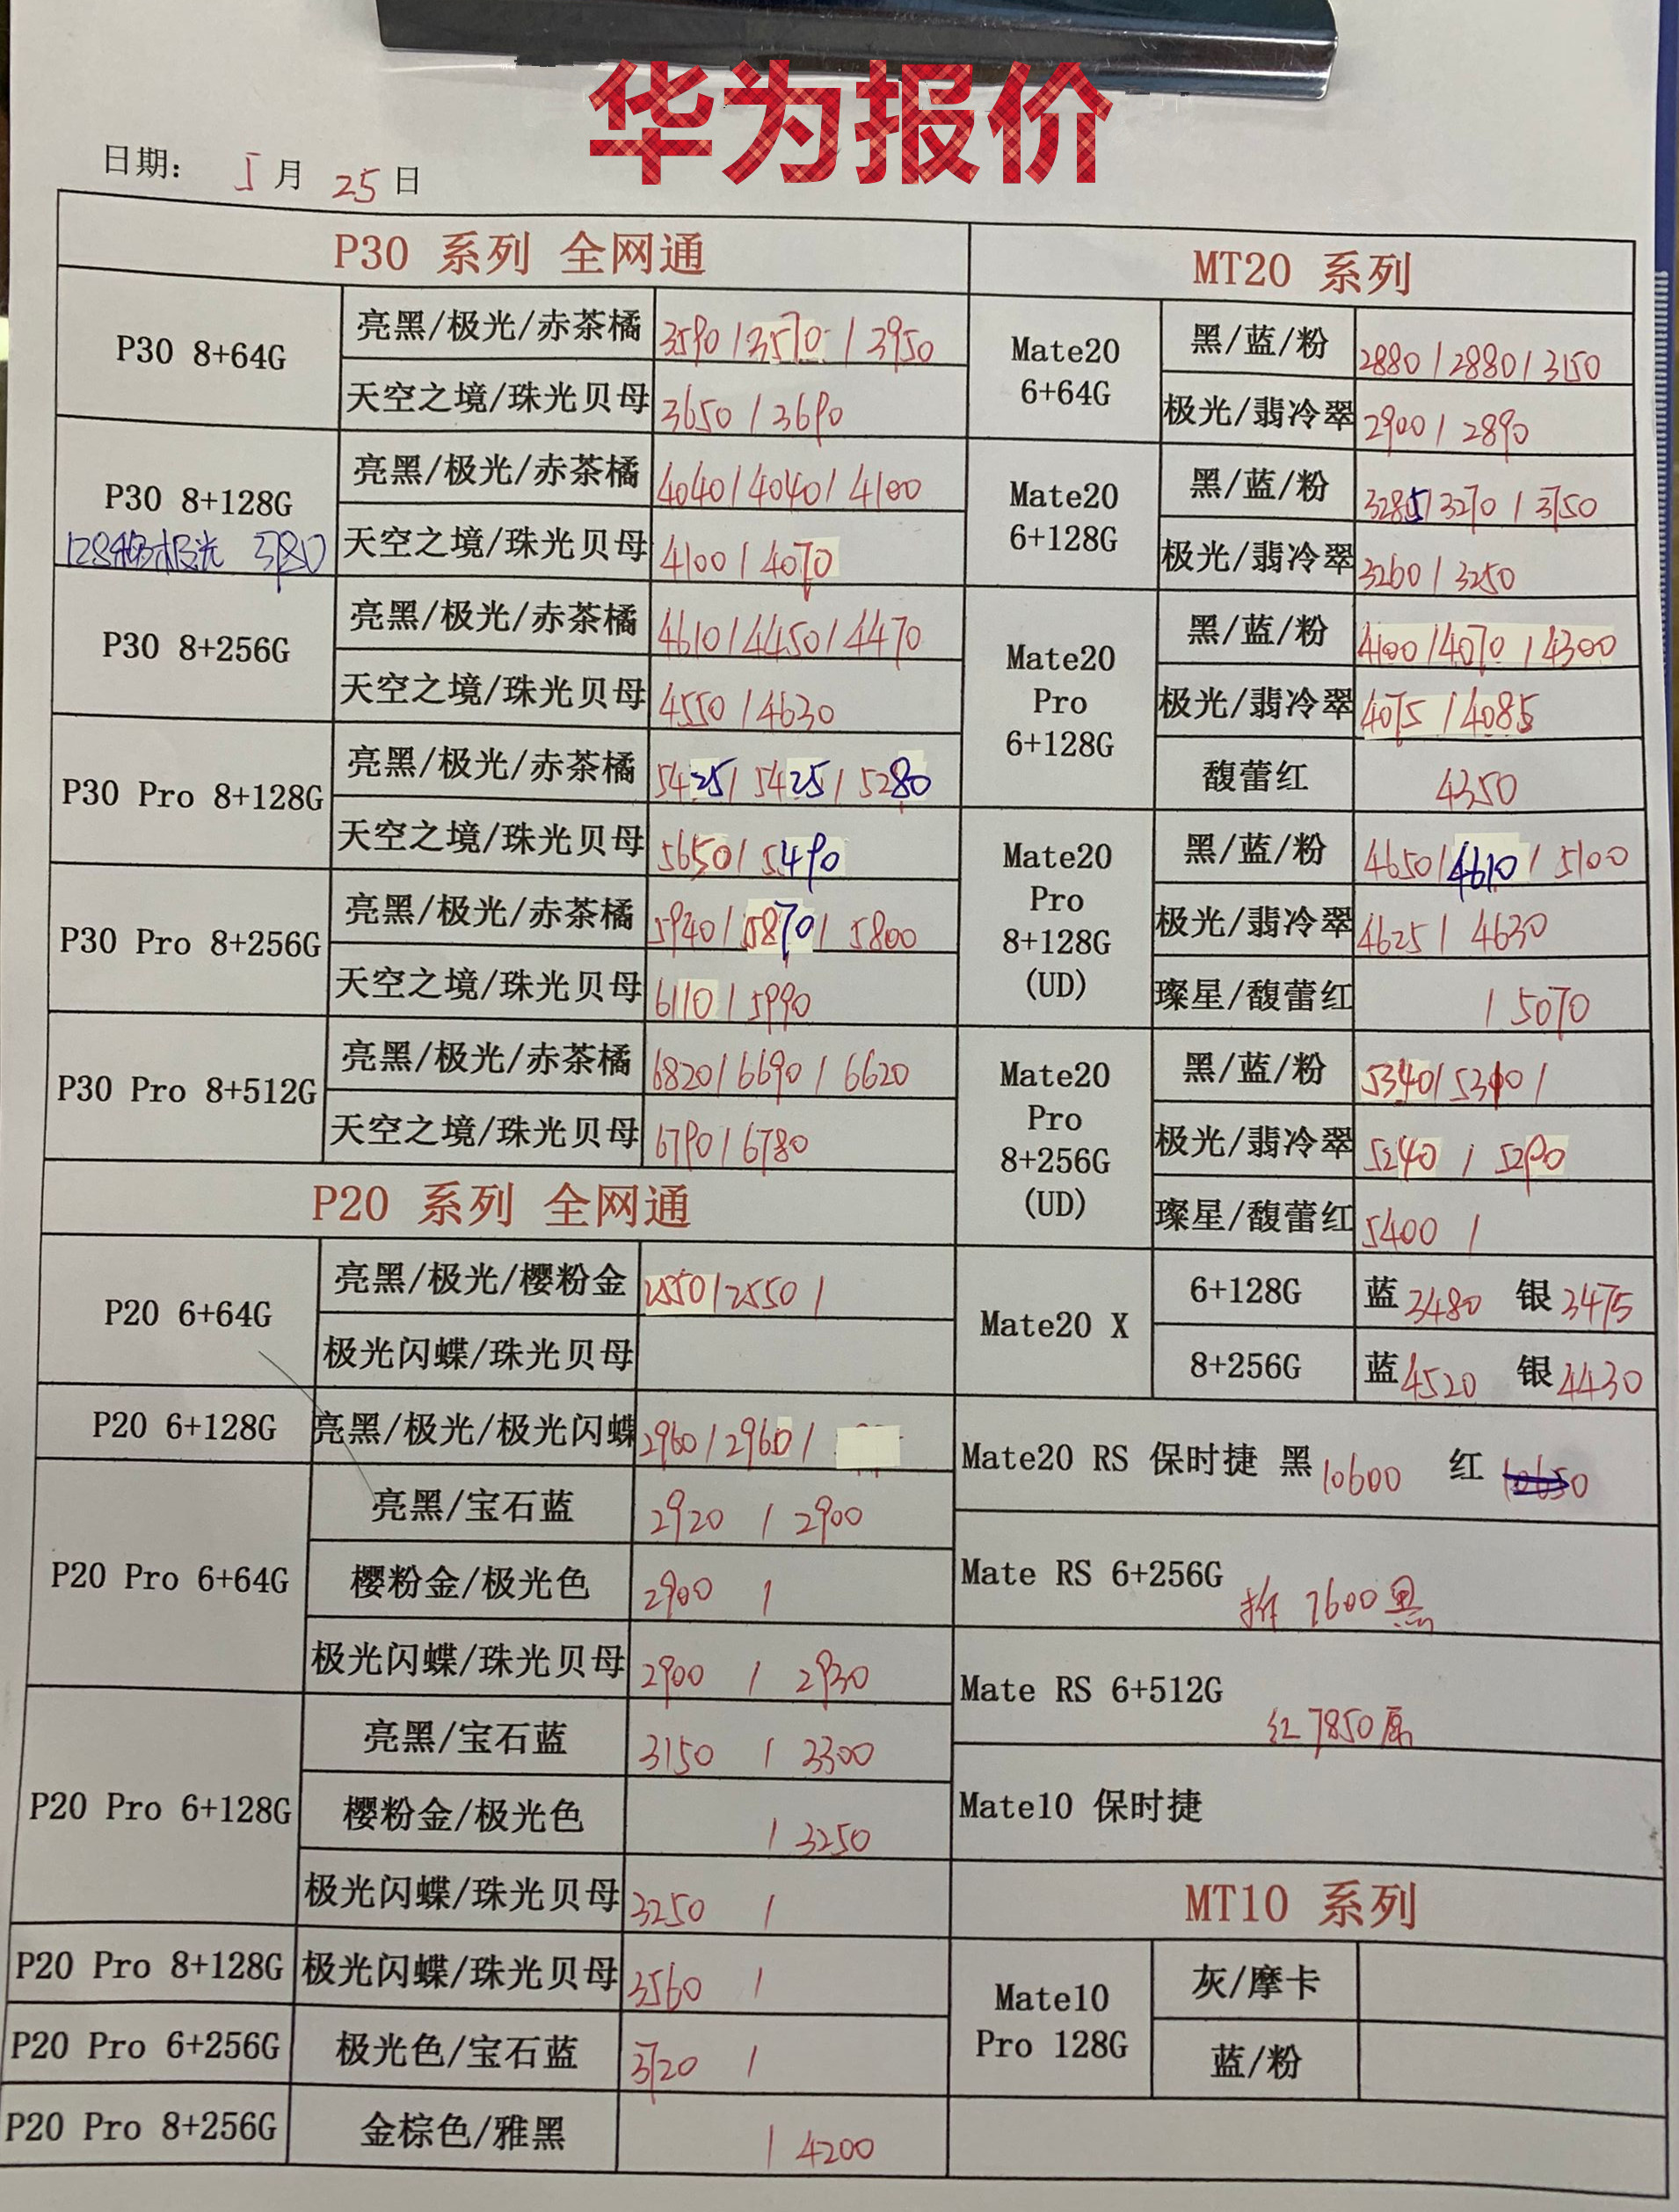 华为报价
日期: 5月25日
P30 系列 全网通
P30 8+64G
亮黑/极光/赤茶橘 3590/3570/3950
天空之境/珠光贝母 3650/3690
P30 8+128G
亮黑/极光/赤茶橘 4040/4040/4100
128 极光
天空之境/珠光贝母 4100/4070
P30 8+256G
亮黑/极光/赤茶橘 4610/4450/4470
天空之境/珠光贝母 4550/4630
P30 Pro 8+128G
亮黑/极光/赤茶橘 5425/5425/5280
天空之境/珠光贝母 5650/5490
P30 Pro 8+256G
亮黑/极光/赤茶橘 5940/5870/5800
天空之境/珠光贝母 6110/5990
P30 Pro 8+512G
亮黑/极光/赤茶橘 6820/6690/6620
天空之境/珠光贝母 6790/6780
P20 系列 全网通
P20 6+64G
亮黑/极光/樱粉金 2550/2550/
极光闪蝶/珠光贝母
P20 6+128G
亮黑/极光/极光闪蝶 2960/2960/
P20 Pro 6+64G
亮黑/宝石蓝 2920 / 2900
樱粉金/极光色 2900 /
极光闪蝶/珠光贝母 2900 / 2930
P20 Pro 6+128G
亮黑/宝石蓝 3150 / 3300
樱粉金/极光色 / 3250
极光闪蝶/珠光贝母 3250 /
P20 Pro 8+128G 极光闪蝶/珠光贝母 3560 /
P20 Pro 6+256G 极光色/宝石蓝 3720 /
P20 Pro 8+256G 金棕色/雅黑 / 4200
MT20 系列
Mate20
6+64G
黑/蓝/粉 2880/2880/3150
极光/翡冷翠 2900/2890
Mate20
6+128G
黑/蓝/粉 3285/3270/3750
极光/翡冷翠 3260/3250
Mate20
Pro
6+128G
黑/蓝/粉 4100/4070/4300
极光/翡冷翠 4075/4085
馥蕾红 4350
Mate20
Pro
8+128G
(UD)
黑/蓝/粉 4650/4610/5100
极光/翡冷翠 4625/4630
璨星/馥蕾红 / 5070
Mate20
Pro
8+256G
(UD)
黑/蓝/粉 5340/5300/
极光/翡冷翠 5240 / 5290
璨星/馥蕾红 5400 /
Mate20 X
6+128G 蓝 3480 银 3475
8+256G 蓝 4520 银 4430
Mate20 RS 保时捷 黑 10600 红 10650
Mate RS 6+256G 拆 7600 黑
Mate RS 6+512G 红 7850 原
Mate10 保时捷
MT10 系列
Mate10
Pro 128G
灰/摩卡
蓝/粉